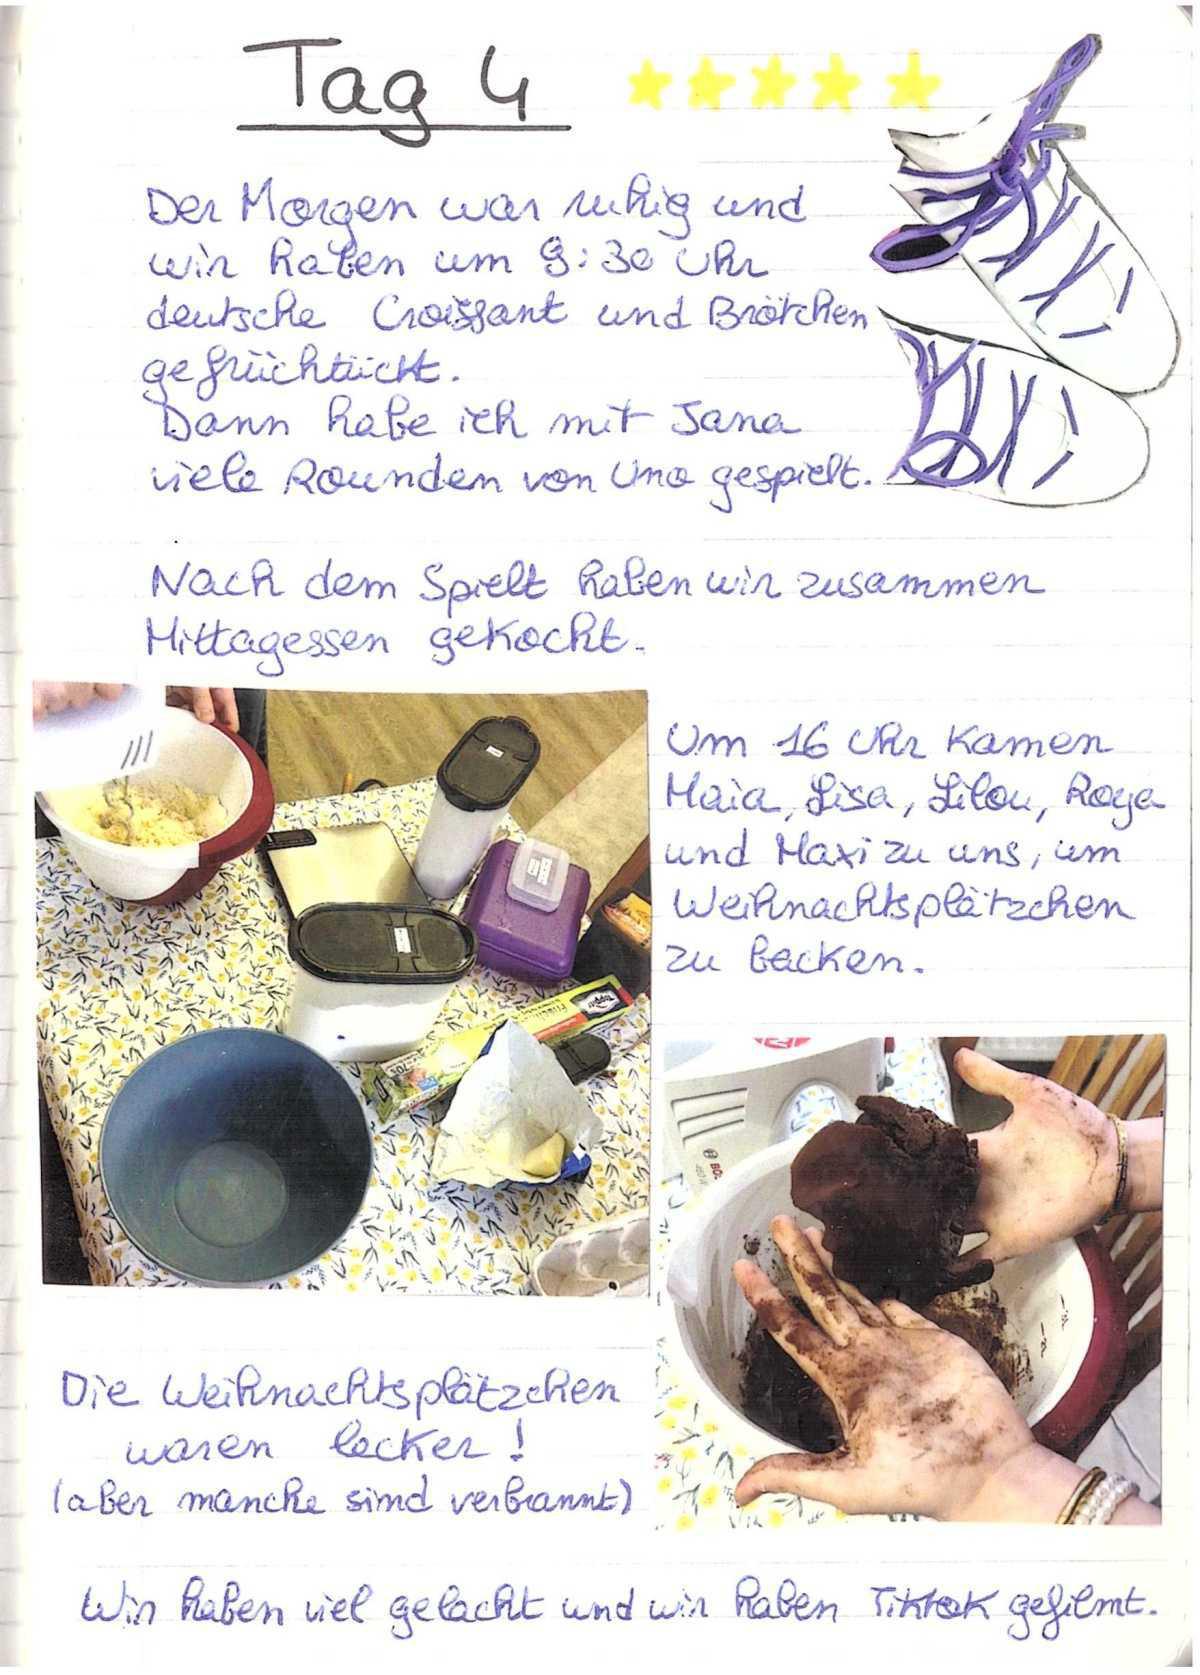 Tag 4
Der Morgen war ruhig und
wir haben um 9:30 Uhr
deutsche Croissant und Brötchen
gefrüchtückt.
Dann habe ich mit Jana
viele Rounden von Uno gespielt.
Nach dem Spielt haben wir zusammen
Mittagessen gekocht.
Um 16 Uhr kamen
Maia, Lisa, Lilou, Roya
und Maxi zu uns, um
Weihnachtsplätzchen
zu backen.
Toppits
BOS
Die Weihnachtsplätzchen
waren lecker !
(aber manche sind verbrannt)
Wir haben viel gelacht und wir haben Tiktok gefilmt.